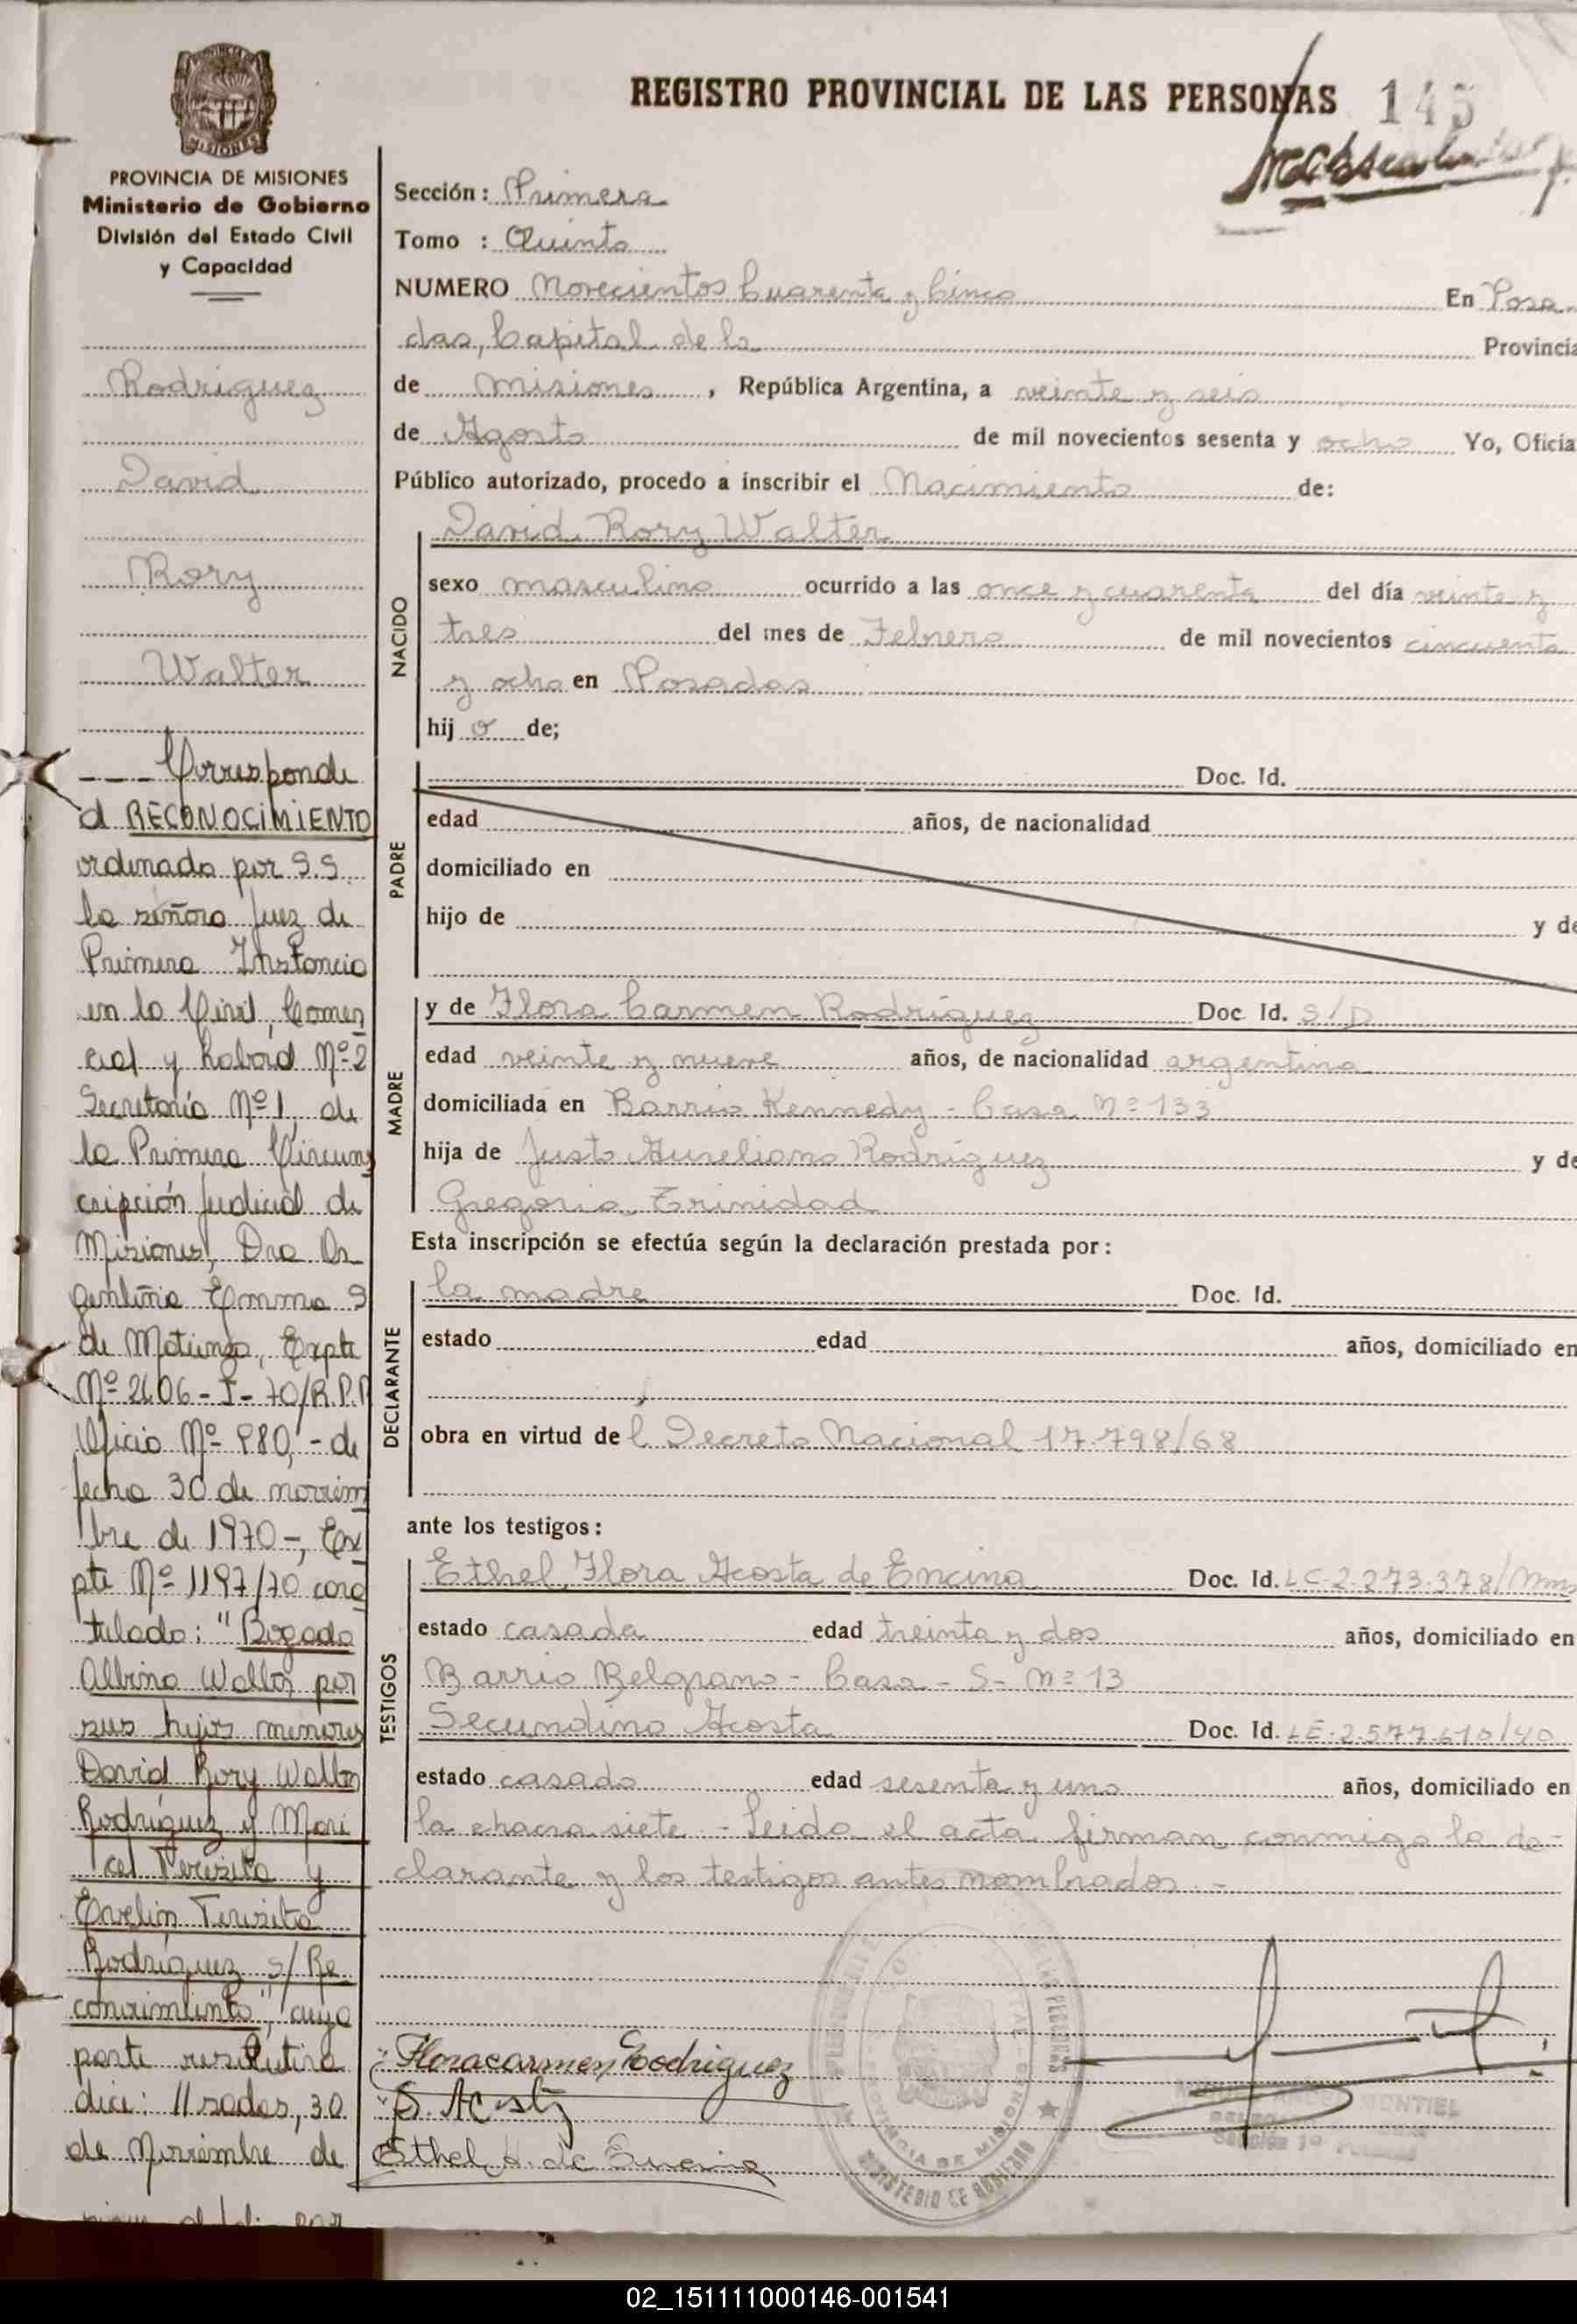 REGISTRO PROVINCIAL DE LAS PERSONAS 145
PROVINCIA DE MISIONES
Ministerio de Gobierno
División del Estado Civil
y Capacidad
Rodriguez
David
Rory
Walter
--- Corresponde
al RECONOCIMIENTO
ordenado por S.S.
la señora Juez de
Primera Instancia
en lo Civil, Comer
cial y Laboral Nº 2
Secretaría Nº 1, de
la Primera Circuns
cripción Judicial de
Misiones, Dra. Ar
gentina Emma S
de
Nº 2606-I-70/R.P.P
Oficio Nº 980,- de
fecha 30 de noviem
bre de 1970-, Ex
pte Nº 1197/70 cara
tulado: "Bogado
Albino Walter por
sus hijos menores
David Rory Walter
Rodríguez y Mari
cel Teresita y
Evelin Teresita
Rodríguez s/Re
conocimiento", cuya
parte resolutiva
dice: "Posadas, 30
de Noviembre de
Sección : Primera
Tomo : Quinto
NUMERO Novecientos Cuarenta y Cinco En Posa-
das, Capital de la Provincia
de Misiones , República Argentina, a veinte y seis
de Agosto de mil novecientos sesenta y ocho Yo, Oficia
Público autorizado, procedo a inscribir el Nacimiento de:
NACIDO
David Rory Walter
sexo masculino ocurrido a las once y cuarenta del día veinte y
tres del mes de Febrero de mil novecientos cincuenta
y ocho en Posadas
hij o de;
PADRE
Doc. Id.
edad años, de nacionalidad
domiciliado en
hijo de y de
MADRE
y de Flora Carmen Rodríguez Doc. Id. S/D
edad veinte y nueve años, de nacionalidad argentina
domiciliada en Barrio Kennedy - Casa Nº 133
hija de Justo Aureliano Rodríguez y de
Gregoria Trinidad
Esta inscripción se efectúa según la declaración prestada por :
DECLARANTE
la madre Doc. Id.
estado edad años, domiciliado en
obra en virtud de l Decreto Nacional 17.798/68
ante los testigos :
TESTIGOS
Ethel Flora Acosta de Encina Doc. Id. LC-2.273.378/Mns
estado casada edad treinta y dos años, domiciliado en
Barrio Belgrano - Casa - S - Nº 13
Secundino Acosta Doc. Id. LE-2.577.610/40
estado casado edad sesenta y uno años, domiciliado en
la chacra siete - Leída el acta firman conmigo la de-
clarante y los testigos antes nombrados.-
Flora carmen Rodriguez
S. Acosta
Ethel A. de Encina
MINISTERIO DE GOBIERNO
PROVINCIA DE MISIONES
02_151111000146-001541